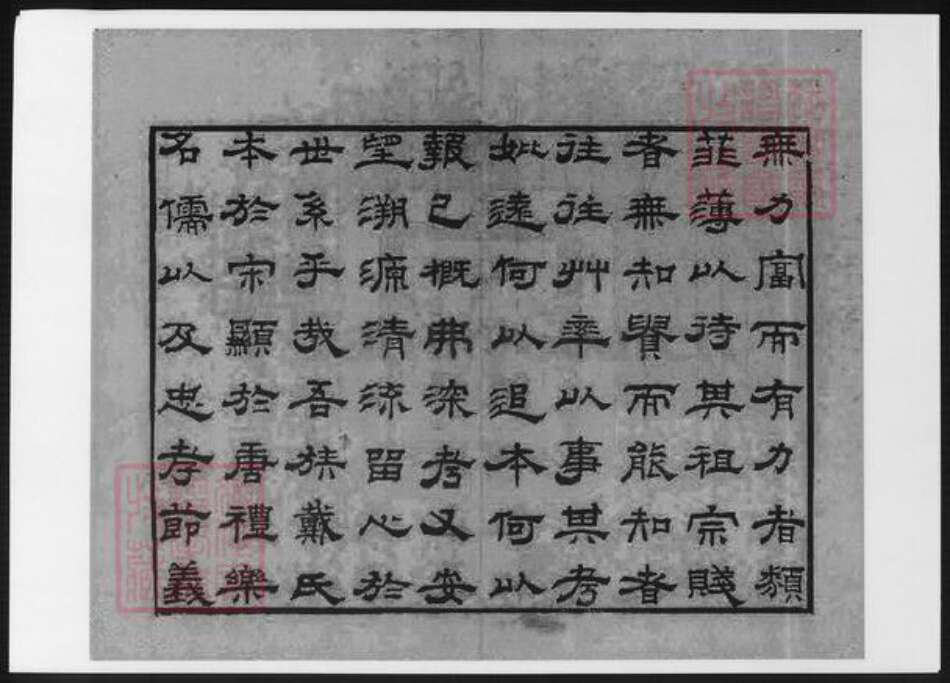 無力富而有力者類
菲薄以待其祖宗賤
者無知貴而能知者
往往艸率以事其考
妣遠何以追本何以
報已概弗深考又安
望溯源清流留心於
世系乎哉吾族戴氏
本於宋顯於唐禮樂
名儒以及忠孝節義